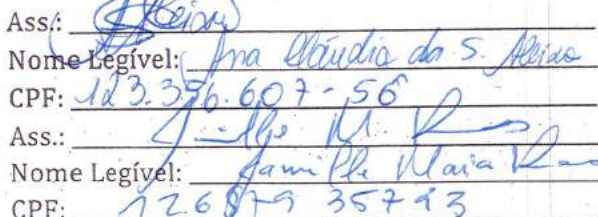 Ass.:
Nome Legível: Ana Cláudia da S. Aleixo
CPF: 123.356.607-56
Ass.:
Nome Legível: Jamille Maia
CPF: 126879 35723